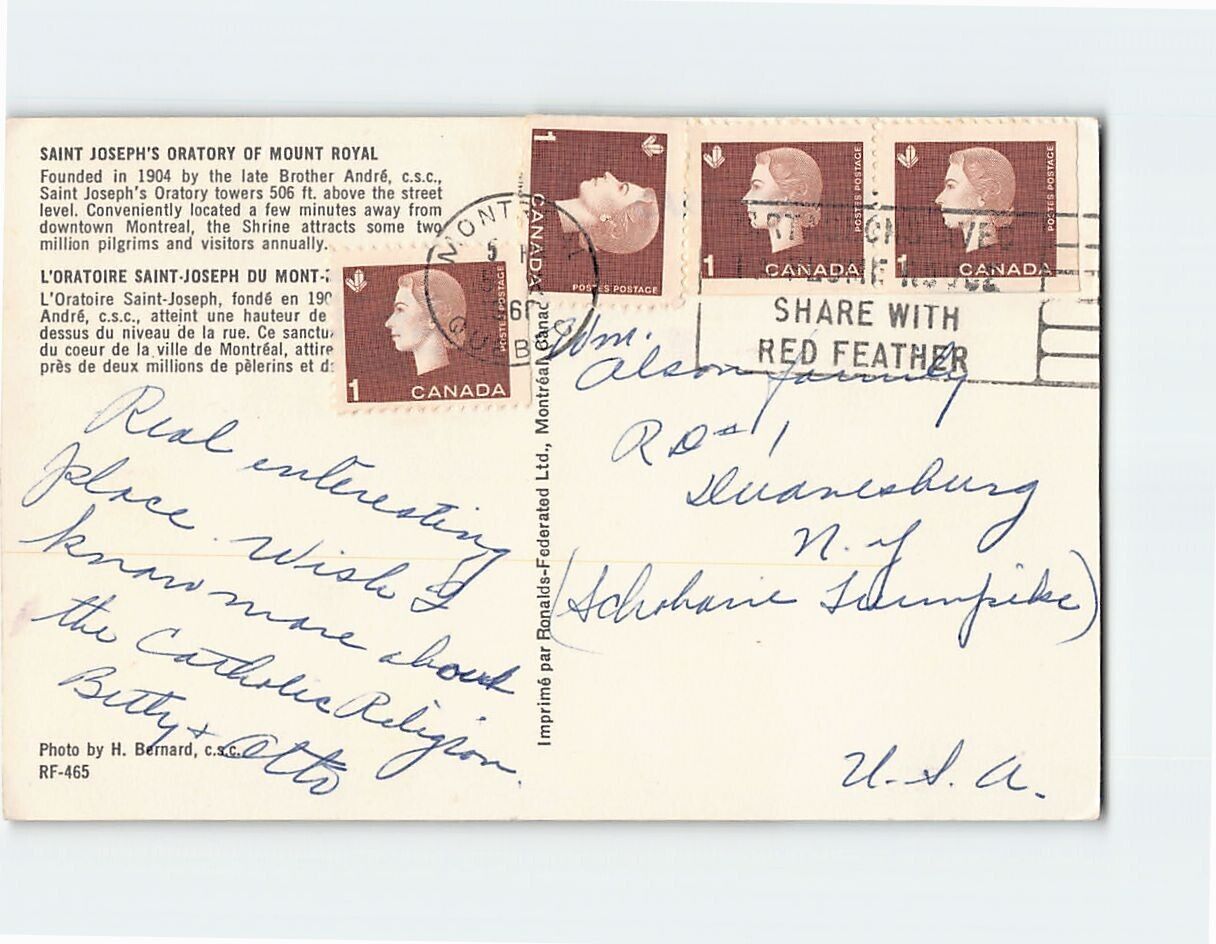 SAINT JOSEPH'S ORATORY OF MOUNT ROYAL
Founded in 1904 by the late Brother André, c.s.c.,
Saint Joseph's Oratory towers 506 ft. above the street
level. Conveniently located a few minutes away from
downtown Montreal, the Shrine attracts some two
million pilgrims and visitors annually.
L'ORATOIRE SAINT-JOSEPH DU MONT-
L'Oratoire Saint-Joseph, fondé en 190
André, c.s.c., atteint une hauteur de
dessus du niveau de la rue. Ce sanctu
du coeur de la ville de Montréal, attire
près de deux millions de pèlerins et d
Real interesting
place. Wish I
know more about
the Catholic Religion.
Betty & Otto
Photo by H. Bernard, c.s.c.
RF-465
Imprimé par Ronalds-Federated Ltd., Montréal, Canad
1
CANADA
POSTES POSTAGE
1
CANADA
POSTES POSTAGE
1
CANADA
POSTES POSTAGE
1
CANADA
POSTES POSTAGE
MONT
5
SHARE WITH
RED FEATHER
Wm.
Olson family
RD #1
Duanesburg
N.Y
(Schoharie Turnpike)
U.S.A.